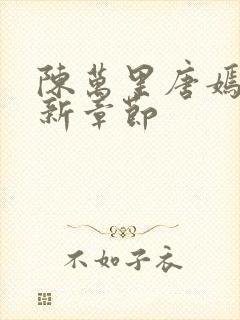 陳萬里唐嫣
新章節
不如子衣